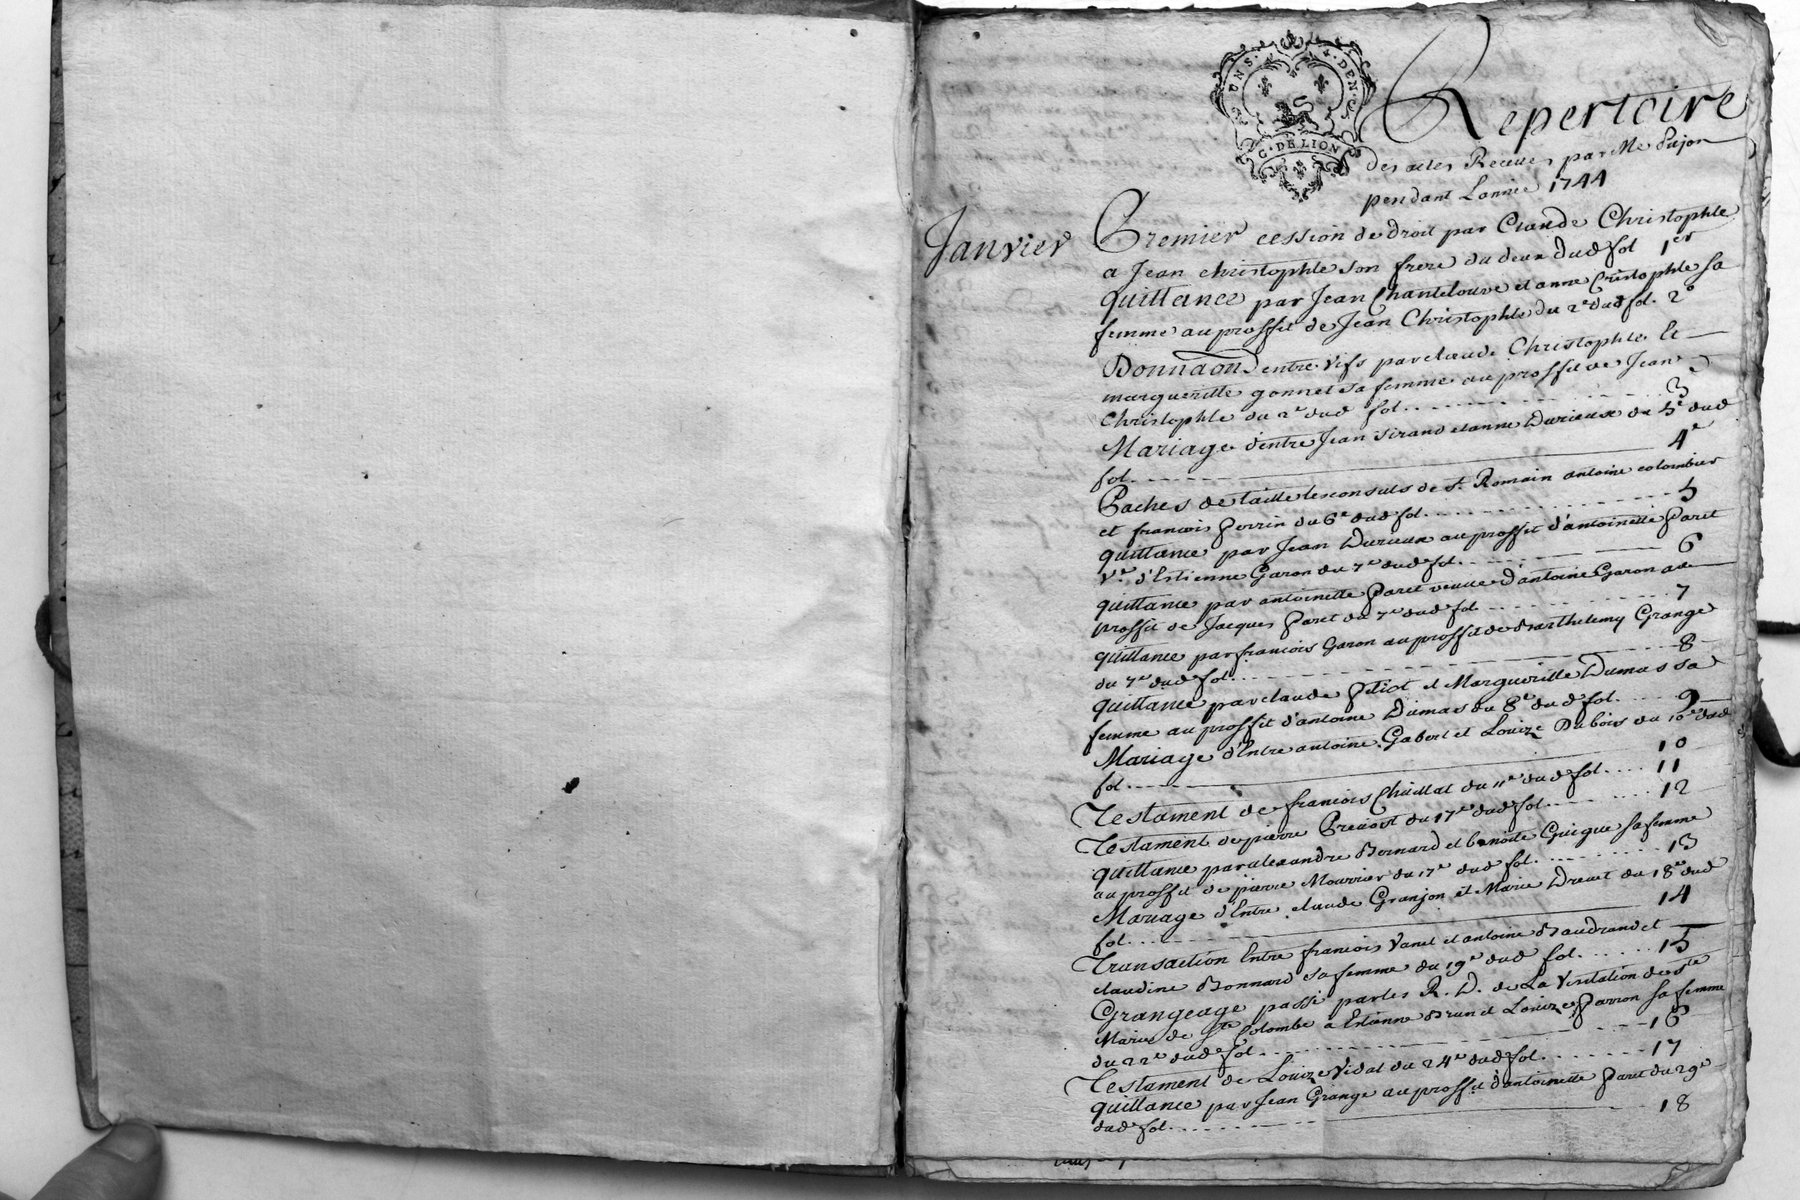 UNS. DEN. C
G. DE LION
Repertoire
des actes Receues par Me Pujon
pendant Lannée 1744
Janvier
Premier cession de droit par Claude Christophle
a Jean christophle son frere du deux dud fol 1er
quittance par Jean Chantelouve et anne Cristophle sa
femme au proffit de Jean Christophle du 2e dud fol. 2e
Donnaon entre vifs par claude Christophle et
margueritte gonnet sa femme au proffit de Jean
Christophle du 2e dud fol. 3
Mariage d'entre Jean Sirand et anne Durieux du 5e dud
fol. 4e
Paches de taille les consuls de st. Romain antoine colombier
et francois Perrin du 6e dud fol. 5
quittance par Jean Durieux au proffit d'antoinette Paret
Ve. d'Estienne Garon du 7e dud fol. 6
quittance par antoinette Paret veuve d'antoine Garon au
proffit de Jacques Paret du 7e dud fol 7
quittance par francois Garon au proffit de Barthelemy Grange
du 7e dud fol. 8
quittance par claude Peliot et Margueritte Dumas sa
femme au proffit d'antoine Dumas du 8e dud fol. 9
Mariage d'Entre antoine Gabert et Louize Dubois du 10e dud
fol. 10
Testament de francois Chuillat du 11e dud fol. 11
Testament de pierre Prevost du 17e dud fol. 12
quittance par alexandre Bonnard et benoite Guigue sa femme
au proffit de pierre Mourrier du 17e dud fol. 13
Mariage d'Entre claude Granjon et Marie Drevet du 18e dud
fol. 14
Transaction Entre francois Vanel et antoine Baudrand et
claudine Bonnard sa femme du 19e dud fol. 15
Grangeage passé par les R. D. de La Visitation de ste
Marie de ste Colombe a Estienne Brun et Louize Parron sa femme
du 22e dud fol. 16
Testament de Louize Vidal du 24e dud fol. 17
quittance par Jean Grange au proffit d'antoinette Paret du 29e
dud fol. 18